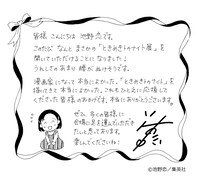 皆様 こんにちは 池野恋です。
このたび なんと まさかの「ときめきトゥナイト展」を
開いていただけることになりました!
うれしさのあまり 膝からぬけそうです。
漫画家になって本当によかった。「ときめきトゥナイト」を
描いてきて本当によかった。これもひとえに応援して
くださった皆様のおかげです。本当にありがとうございます。
ぜひ、多くの皆様に
会場に足を運んでいただき
たいと思っております。
楽しんでくださいね!
©池野恋/集英社